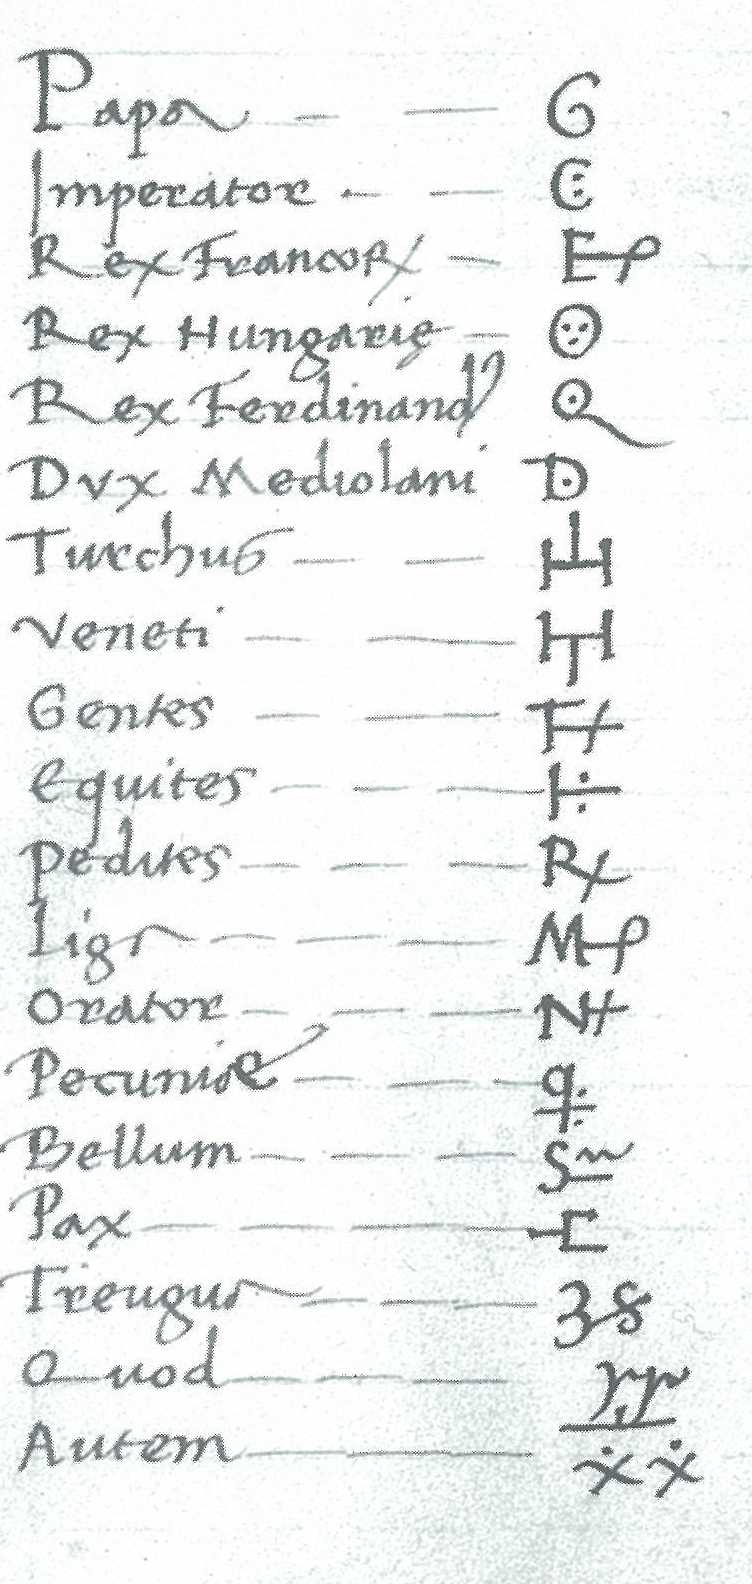 Papa — — G
Imperator — — C:
Rex Francoꝝ —
Rex Hungarie —
Rex Ferdinand
Dvx Mediolani D
Turchus — —
Veneti — —
Gentes — —
Equites — — —
Pedites — — — R
Liga — — —
Orator — — — N
Pecuniæ — — — q
Bellum — — —
Pax — — — —
Treugua — — —
Quod — — —
Autem — — — ẋ ẋ